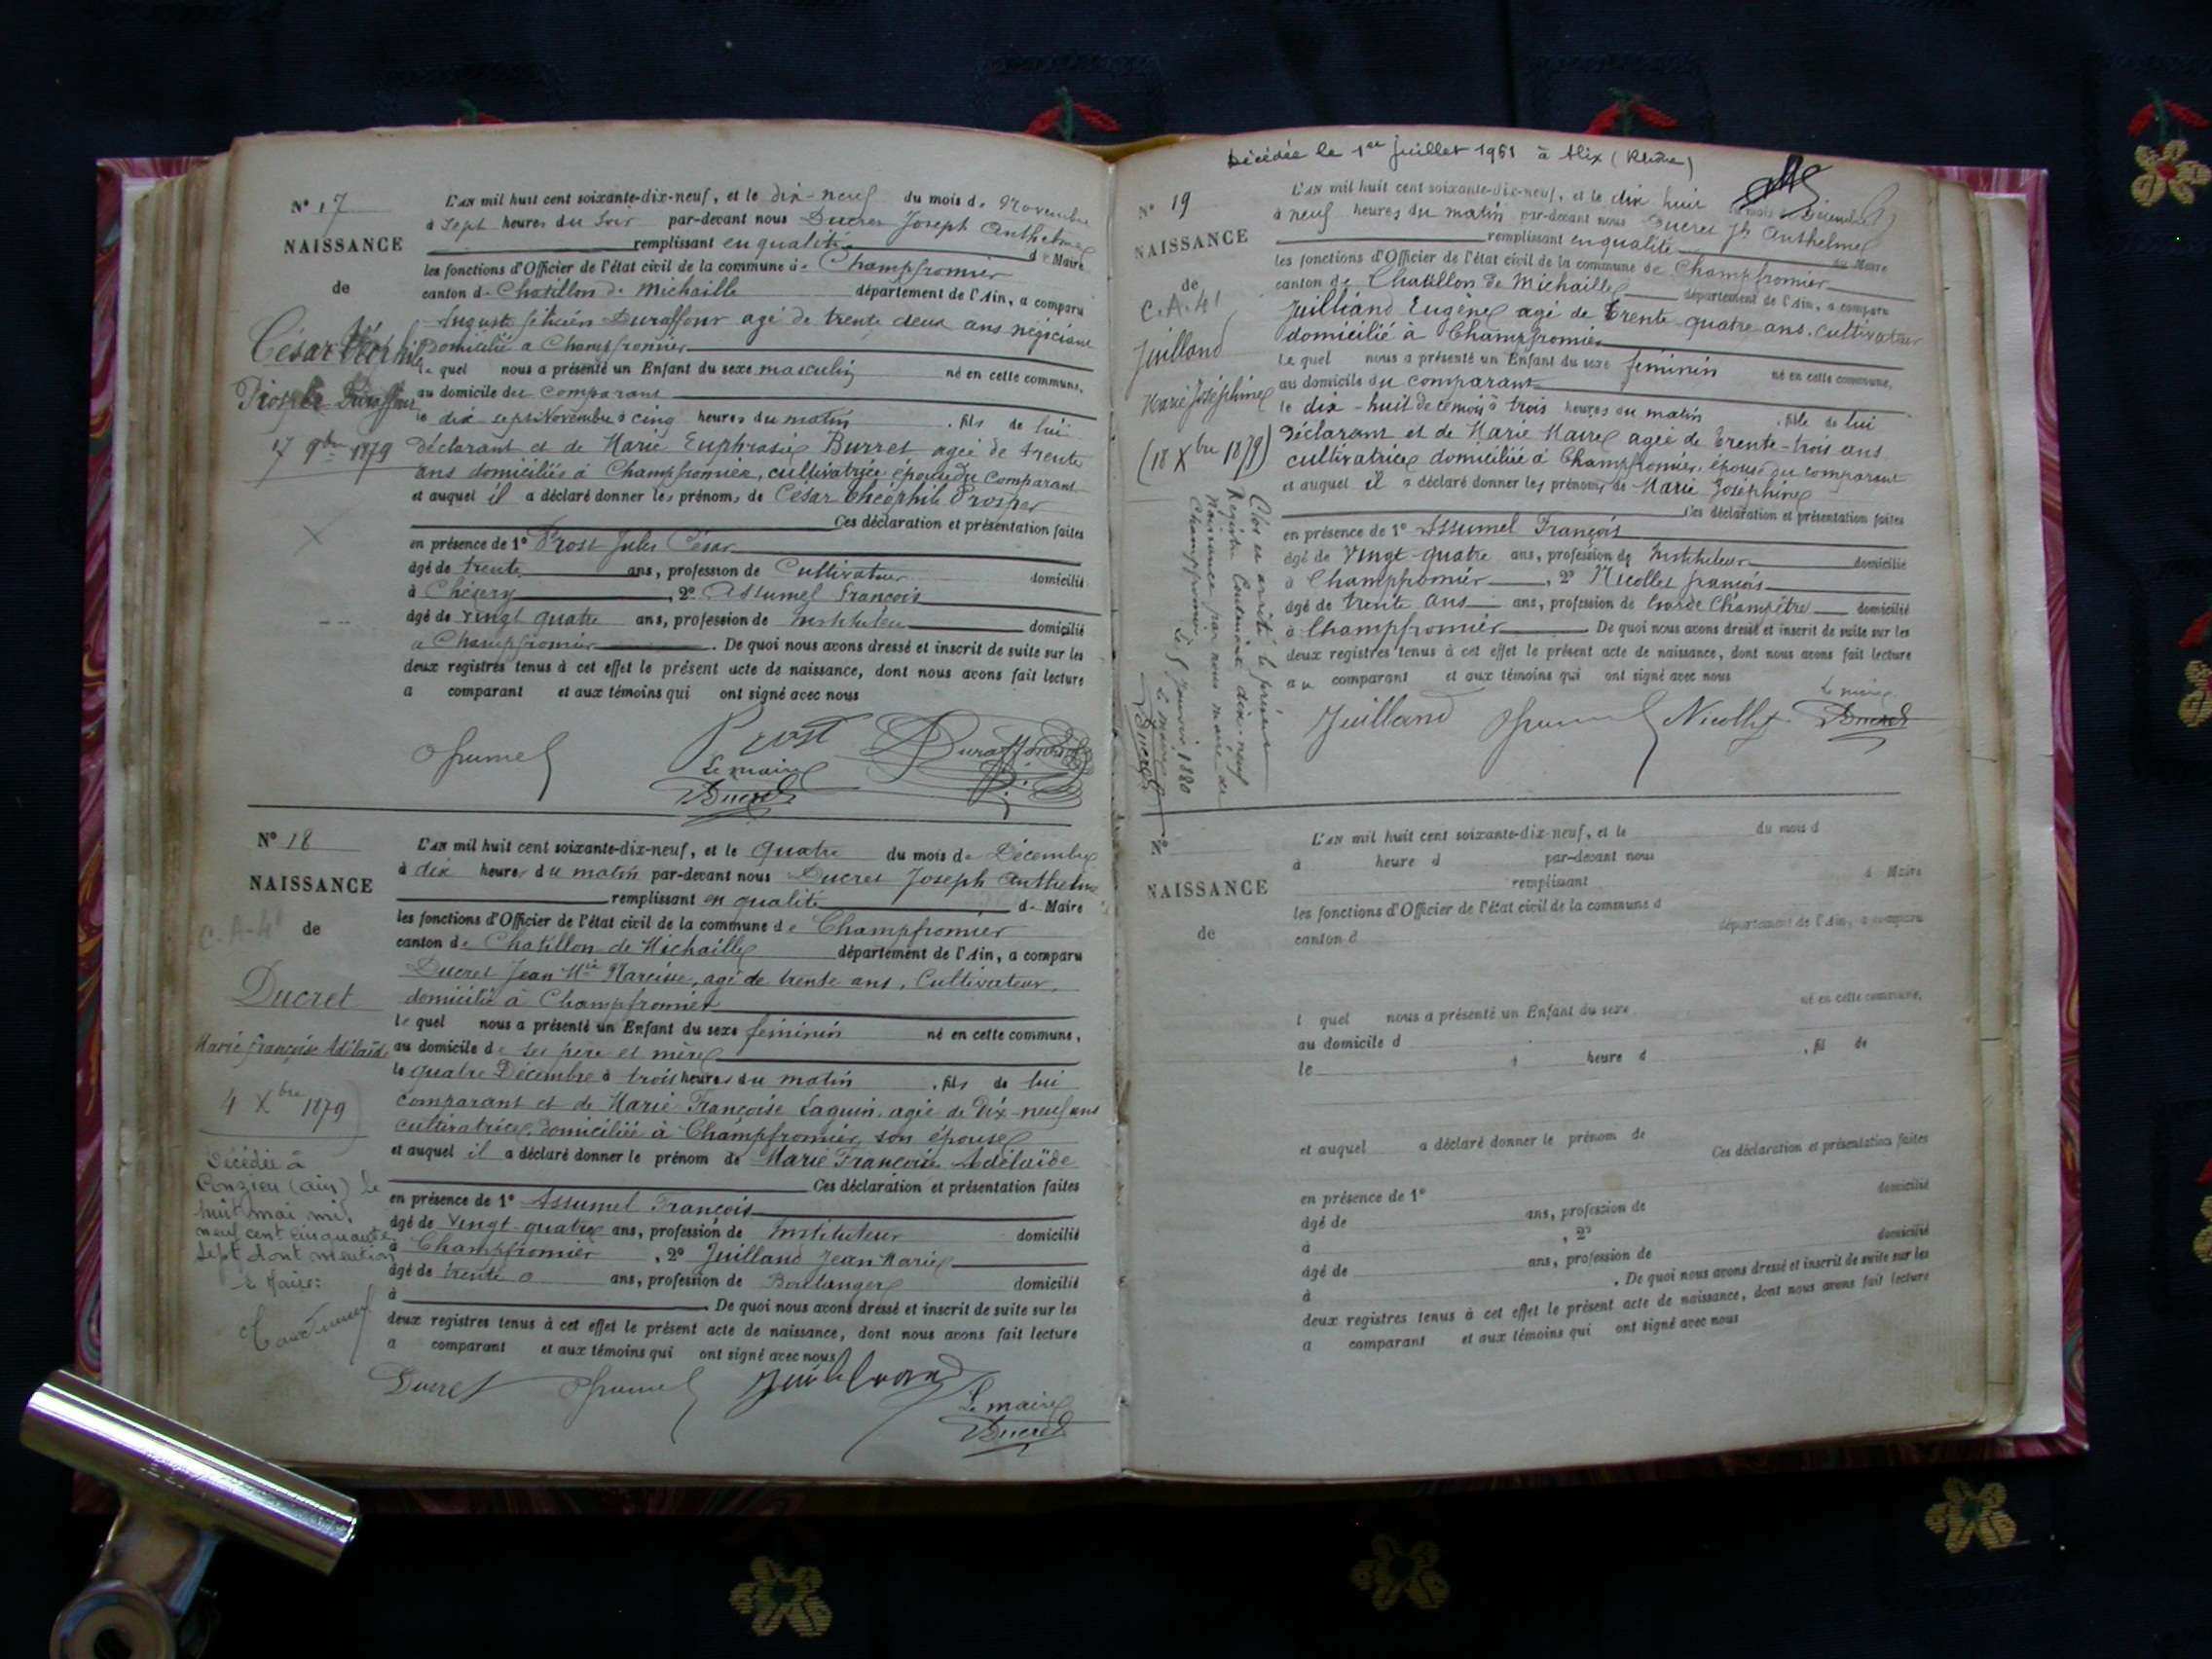 N° 17
NAISSANCE
de
César Théophile
Prosper Duraffour
17 9bre 1879
L'AN mil huit cent soixante-dix-neuf, et le dix-neuf du mois de Novembre
à Sept heures du Soir par-devant nous Ducret Joseph Anthelme
remplissant en qualité de Maire
les fonctions d'Officier de l'état civil de la commune de Champfromier
canton de Chatillon de Michaille département de l'Ain, a comparu
Auguste Félicien Duraffour agé de trente deux ans négociant
domicilié à Champfromier
le quel nous a présenté un Enfant du sexe masculin né en cette commune,
au domicile du comparant
le dix sept Novembre à cinq heures du matin , fils de lui
déclarant et de Marie Euphrasie Burret agée de trente
ans domiciliée à Champfromier, cultivatrice épouse du comparant
et auquel il a déclaré donner les prénoms de César Théophile Prosper
Ces déclaration et présentation faites
en présence de 1° Prost Jules César
âgé de trente ans, profession de Cultivateur domicilié
à Chézery , 2° Assumel François
âgé de vingt quatre ans, profession de Instituteur domicilié
à Champfromier . De quoi nous avons dressé et inscrit de suite sur les
deux registres tenus à cet effet le présent acte de naissance, dont nous avons fait lecture
a comparant et aux témoins qui ont signé avec nous
Prost Duraffour
Le maire
Ducret
N° 18
NAISSANCE
C-A-41 de
Ducret
Marie Françoise Adélaïde
4 Xbre 1879
Décédée à
Conzieu (ain) le
huit mai mil
neuf cent cinquante
sept dont mention
Le Maire:
L'AN mil huit cent soixante-dix-neuf, et le quatre du mois de Décembre
à dix heures du matin par-devant nous Ducret Joseph Anthelme
remplissant en qualité de Maire
les fonctions d'Officier de l'état civil de la commune de Champfromier
canton de Chatillon de Michaille département de l'Ain, a comparu
Ducret Jean Mie Narcisse, agé de trente ans, Cultivateur,
domicilié à Champfromier
le quel nous a présenté un Enfant du sexe féminin né en cette commune,
au domicile de ses père et mère
le quatre Décembre à trois heures du matin , fils de lui
comparant et de Marie Françoise Laguin, agée de Dix-neuf ans
cultivatrice, domiciliée à Champfromier, son épouse
et auquel il a déclaré donner le prénom de Marie Françoise Adélaïde
Ces déclaration et présentation faites
en présence de 1° Assumel François
âgé de vingt-quatre ans, profession de Instituteur domicilié
à Champfromier , 2° Juilland Jean Marie
âgé de trente ans, profession de Boulanger domicilié
à . De quoi nous avons dressé et inscrit de suite sur les
deux registres tenus à cet effet le présent acte de naissance, dont nous avons fait lecture
a comparant et aux témoins qui ont signé avec nous
Ducret Juilland
Le maire
Ducret
Décédée le 1er Juillet 1961 à Alix (Rhône)
N° 19
NAISSANCE
de
C.A.41
Juilland
Marie Joséphine
(18 Xbre 1879)
Clos et arrêté le présent
Registre Contenant dix-neuf
Naissances par nous maire de
Champfromier, Le 5 Janvier 1880
Le maire
Ducret
L'AN mil huit cent soixante-dix-neuf, et le dix huit du mois de Décembre
à neuf heures du matin par-devant nous Ducret Jh Anthelme
remplissant en qualité de Maire
les fonctions d'Officier de l'état civil de la commune de Champfromier
canton de Chatillon de Michaille département de l'Ain, a comparu
Juilliand Eugène agé de trente-quatre ans, cultivateur
domicilié à Champfromier
le quel nous a présenté un Enfant du sexe féminin né en cette commune,
au domicile du comparant
le dix-huit de ce mois à trois heures du matin , fille de lui
déclarant et de Marie Maire agée de trente-trois ans
cultivatrice domiciliée à Champfromier, épouse du comparant
et auquel il a déclaré donner les prénoms de Marie Joséphine
Ces déclaration et présentation faites
en présence de 1° Assumel François
âgé de vingt-quatre ans, profession de Instituteur domicilié
à Champfromier , 2° Nicollet françois
âgé de trente ans ans, profession de Garde Champêtre domicilié
à Champfromier De quoi nous avons dressé et inscrit de suite sur les
deux registres tenus à cet effet le présent acte de naissance, dont nous avons fait lecture
au comparant et aux témoins qui ont signé avec nous
Le maire
Juilland Nicollet Ducret
N°
NAISSANCE
de
L'AN mil huit cent soixante-dix-neuf, et le du mois d
à heure d par-devant nous
remplissant d Maire
les fonctions d'Officier de l'état civil de la commune d
canton d département de l'Ain, a comparu
l quel nous a présenté un Enfant du sexe né en cette commune,
au domicile d
le à heure d , fil de
et auquel a déclaré donner le prénom de
Ces déclaration et présentation faites
en présence de 1°
âgé de ans, profession de domicilié
à , 2°
âgé de ans, profession de domicilié
à . De quoi nous avons dressé et inscrit de suite sur les
deux registres tenus à cet effet le présent acte de naissance, dont nous avons fait lecture
a comparant et aux témoins qui ont signé avec nous